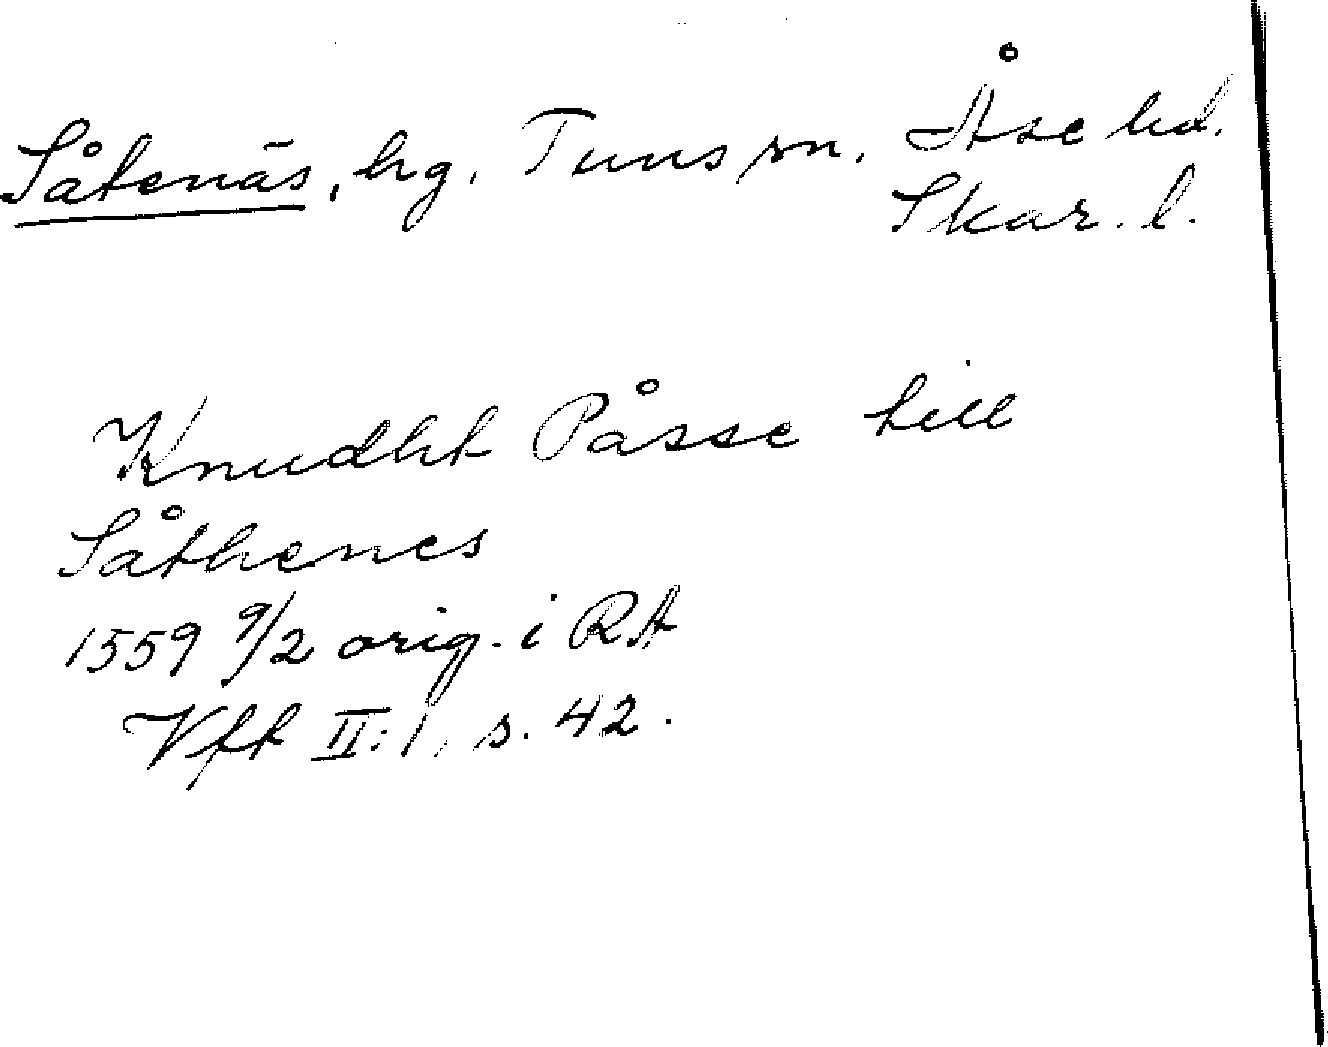 Såtenäs, hg. Tuns sn. Åse hd.
Skar. l.
Knudht Påsse till
Såthenes
1559 9/2 orig. i RA
Vff II:1, s. 42.